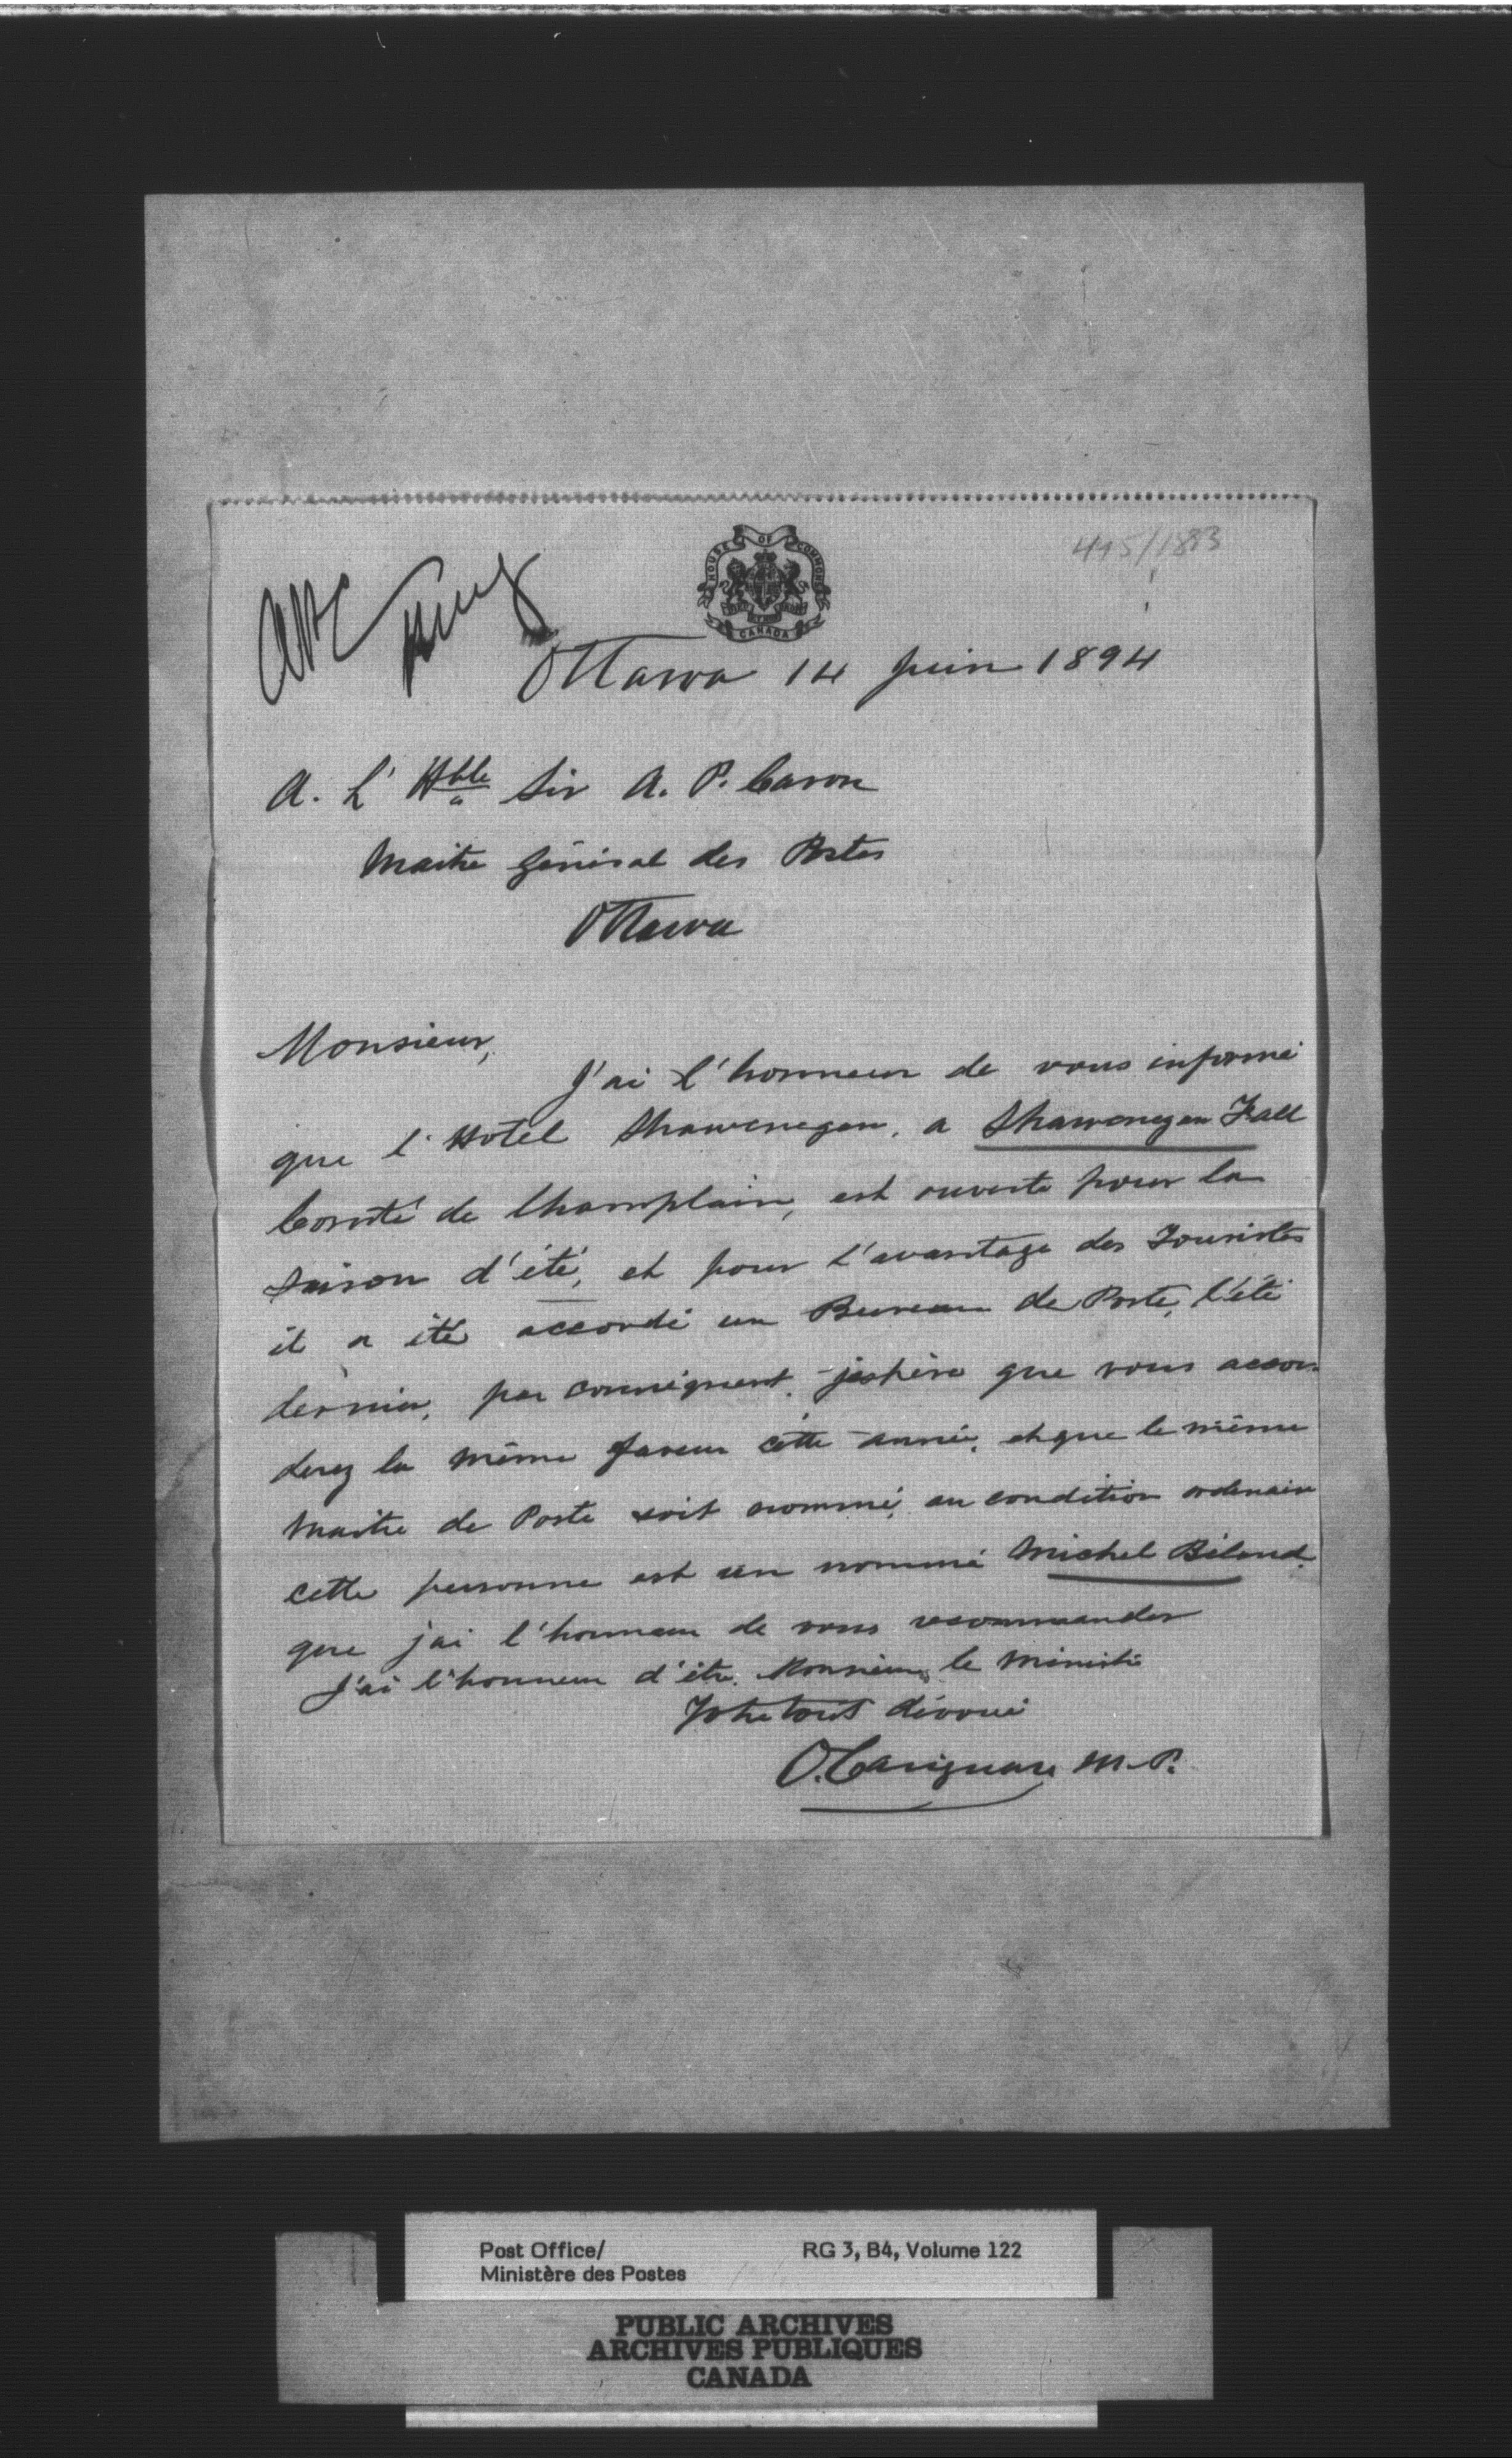 415/1883
HOUSE OF COMMONS
CANADA
Ottawa 14 juin 1894
A. L' Hble Sir A. P. Caron
Maitre général des Postes
Ottawa
Monsieur,
J'ai l'honneur de vous informé
que l'Hotel Shawenegan, a Shawenegan Fall
Comté de Champlain, est ouverte pour la
saison d'été, et pour l'avantage des Touristes
il a été accordé un Bureau de Poste, l'été
dernier, par conséquent, j'espère que vous accor-
derez la même faveur cette année, et que le même
Maitre de Poste soit nommé, au condition ordenaire
cette personne est un nommé Michel Béland
que j'ai l'honneur de vous recommander
J'ai l'honneur d'être. Monsieur le Ministre
Votre tout dévoué
O. Carignan M.P.
Post Office/ RG 3, B4, Volume 122
Ministère des Postes
PUBLIC ARCHIVES
ARCHIVES PUBLIQUES
CANADA